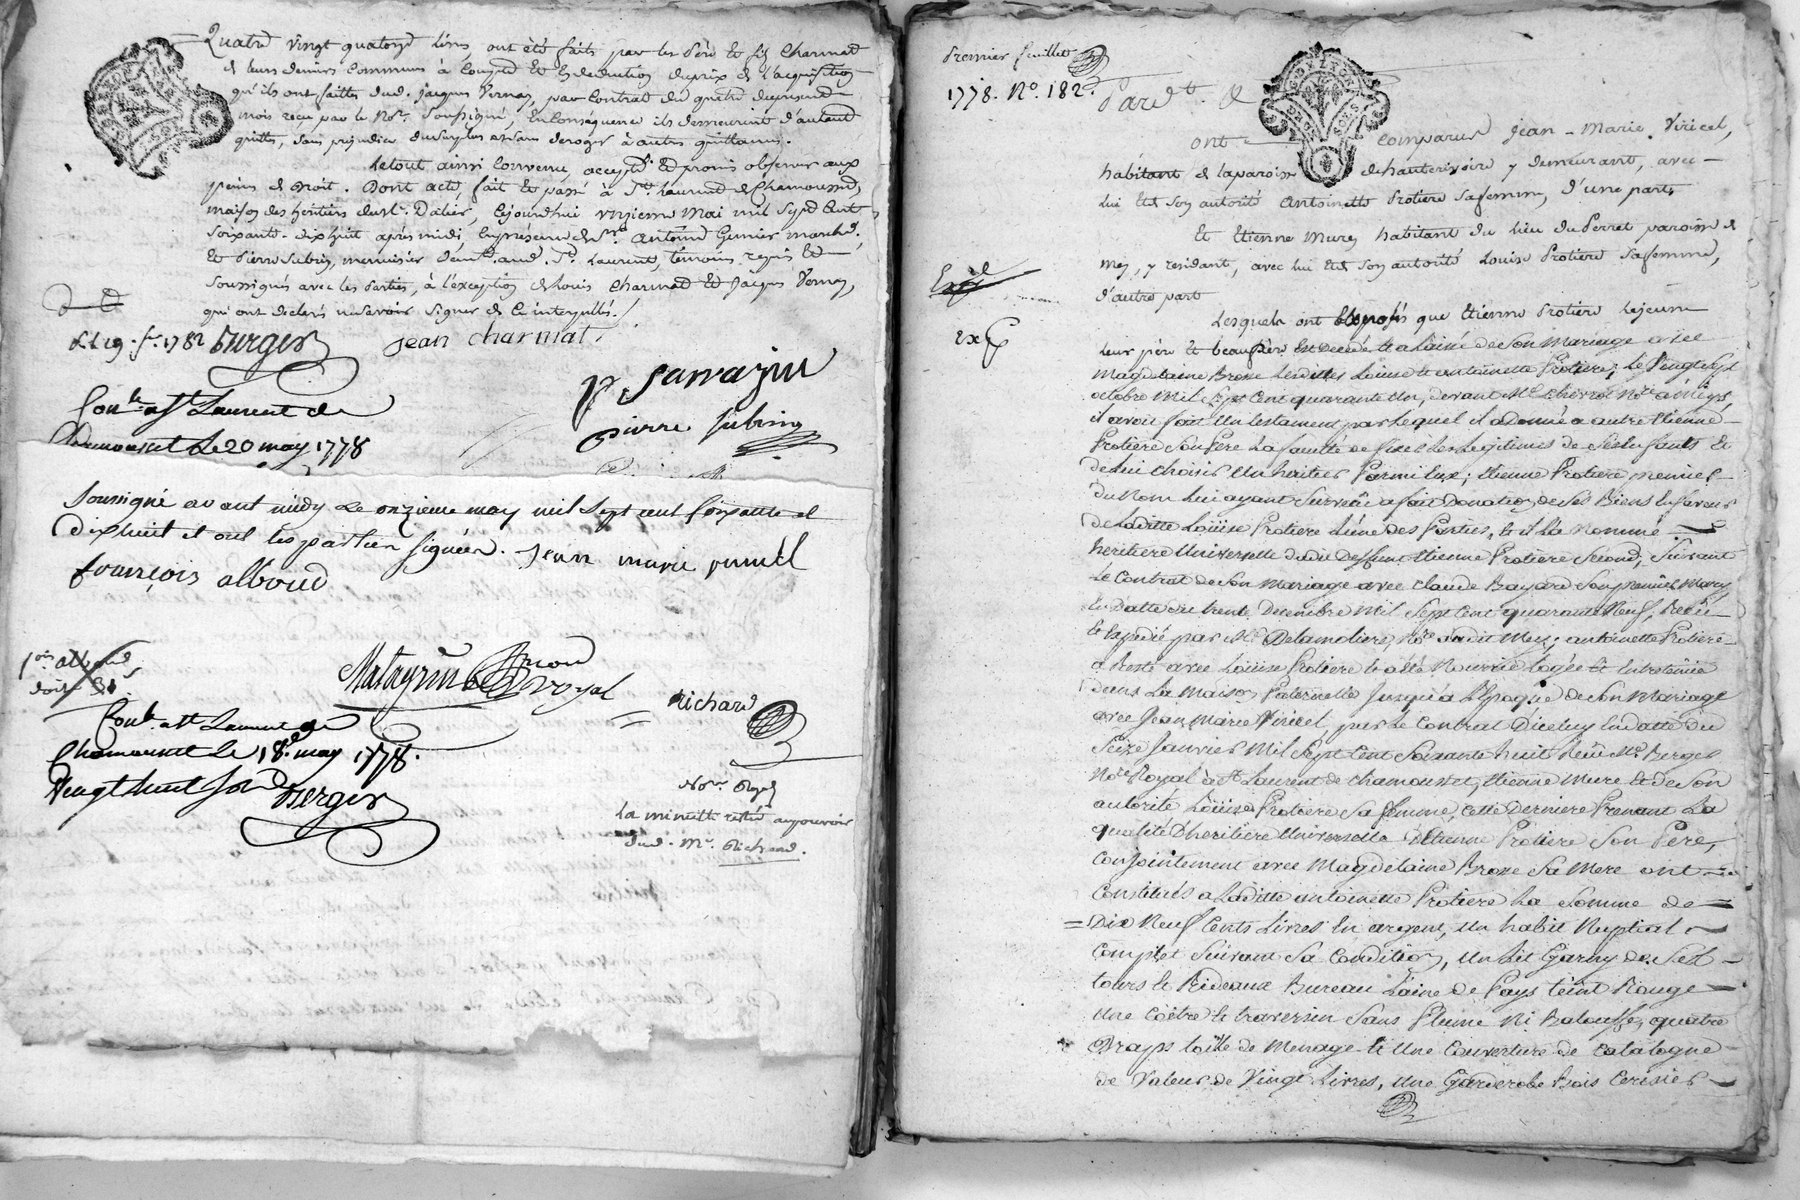 Quatre vingt quatorze livres, ont été faits par les Père et fils Charmat
de leurs deniers communs à Compte et en deduction du prix de l'acquisition
qu'ils ont faittes dud. jacques Vernay, par Contrat du quatre du présent
mois reçu par le No.re Soussigné, En Conséquence ils demeurent d'autant
quittes, Sans préjudice du Surplus et sans deroger à autres quittances.
Le tout ainsi Convenu, accepté et promis observer aux
peines de droit. Dont acte, fait et passé à St. Laurent de Chamousset,
maison des héritiers du Sr. Dalier, Cejourdhui onzieme Mai mil Sept Cent
Soixante-dix huit après midi, En présence de Sr. Antoine Grenier march.d,
Et Pierre Subrin, menuisier dem.t aud. St. Laurent, témoins requis Et
Soussignés avec les Parties, à l'exception de Louis Charmat Et Jacques Vernay,
qui ont declaré ne savoir signer de ce interpellés./.
1782 Berger
jean charmat.
P. Sarrazin
pierre subrin
Con.lé a St Laurent de
Chamousset Le 20 may 1778
Soussigné avant midy Le onzieme may mil Sept cent Soixante et
Dixhuit et ont les parties signées. Jean marie
françois alboud
Richard
doit
Royal
Con.lé a St Laurent de
Chamousset Le 18.e may 1778.
Vingt huit Sols Berger
No.re Royal
La minutte restée au pouvoir
dud. M.e Richard.
Premier feuillet
1778. N.o 182.
Pard.t &
ont comparus Jean-Marie Viricel,
habitant de la paroisse de hauterivoire y demeurant, avec
lui Et de Son autorité Antoinette Protiere Safemme, d'une part,
Et Etienne Mure, habitant du Lieu du Perret paroisse de
Meys, y residant, avec lui Et de Son autorité Louise Protiere Safemme,
d'autre part
Lesquels ont Exposés que Etienne Protiere Lejeune
Leur père Et beaupère Est Decedé et a Laissé de Son Mariage avec
Magdelaine Brosse Lesdittes Loüise et antoinette Protiere; Le Vingt Sept
octobre Mil Sept Cent quarante Un, devant M.e Thevenot No.re à Meys,
il avoit fait Un testament par Lequel il a Donné a autre Etienne
Protiere Son Père La faculté de fixer Les Legitimes de Ses Enfants Et
De Lui Choisir Un heritier Parmi Eux; Etienne Protiere premier
Du Nom Lui ayant Survécu a fait Donation de Ses Biens En faveur
De Laditte Loüise Protiere L'une des Parties, et il L'a Nommé
heritiere Universelle dudit Deffunt Etienne Protiere Second, Suivant
Le Contrat de Son Mariage avec Claude Bayard Son premier Mary
En Datte du trente Decembre Mil Sept Cent quarante Neuf, Reçu
Et Expedié par M.e Delamoliere, No.re audit Meys; antoinette Protiere
a Resté avec Loüise Protiere Et a Eté Nourrie Logée Et Entretenüe
Dans La Maison Paternelle Jusqu'a L'Epoque de Son Mariage
avec Jean Marie Viricel, par Le Contrat D'icelui En datte du
Seize Janvier Mil Sept Cent Soixante huit Reçu M.e Berger
No.re Royal à St Laurent de Chamousset, Etienne Mure Et de Son
autorité Loüise Protiere Sa femme, Cette Derniere Prenant La
qualité D'heritiere Universelle d'Etienne Protiere Son Pere,
Conjointement avec Magdelaine Brosse Sa Mere ont
Constitués a Laditte antoinette Protiere La Somme de
Dix Neuf Cents Livres En argent, un habit Nuptial
Complet Suivant Sa Condition, un Lit Garny de Ses
tours Et Rideaux Bureau Laine de Pays teint Rouge
une Coëtre Et traversin Sans Plume Ni Balouffe, quatre
Draps toille de Menage Et Une Couverture de Catalogne
De Valeur de Vingt Livres, Une Garderobe Bois Cerisier